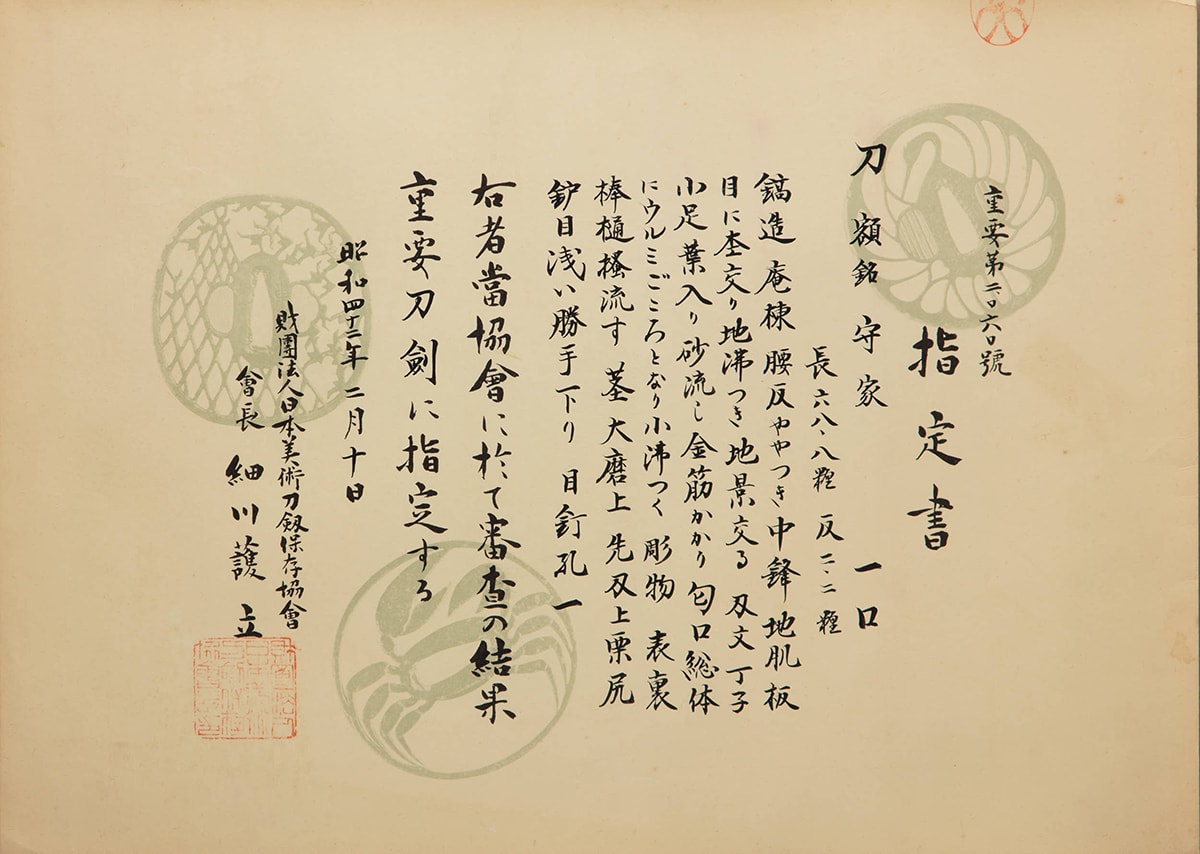 重要第二〇六〇號
指定書
刀 額銘 守家 一口
長 六八・八糎 反 二・二糎
鎬造 庵棟 腰反ややつき 中鋒 地肌 板
目に杢交り 地沸つき 地景交る 刃文 丁子
小足 葉入り 砂流し 金筋かかり 匂口総体
にウルミごころとなり小沸つく 彫物 表裏
棒樋掻流す 茎 大磨上 先刃上栗尻
鈩目浅い勝手下り 目釘孔一
右者當協會に於て審査の結果
重要刀劍に指定する
昭和四十三年二月十日
財團法人日本美術刀劔保存協會
會長 細川護立